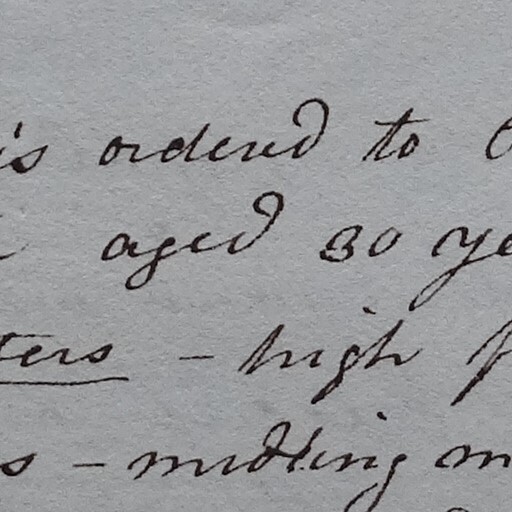 is ordered to
aged 30 ye
ters - high
s - middling m